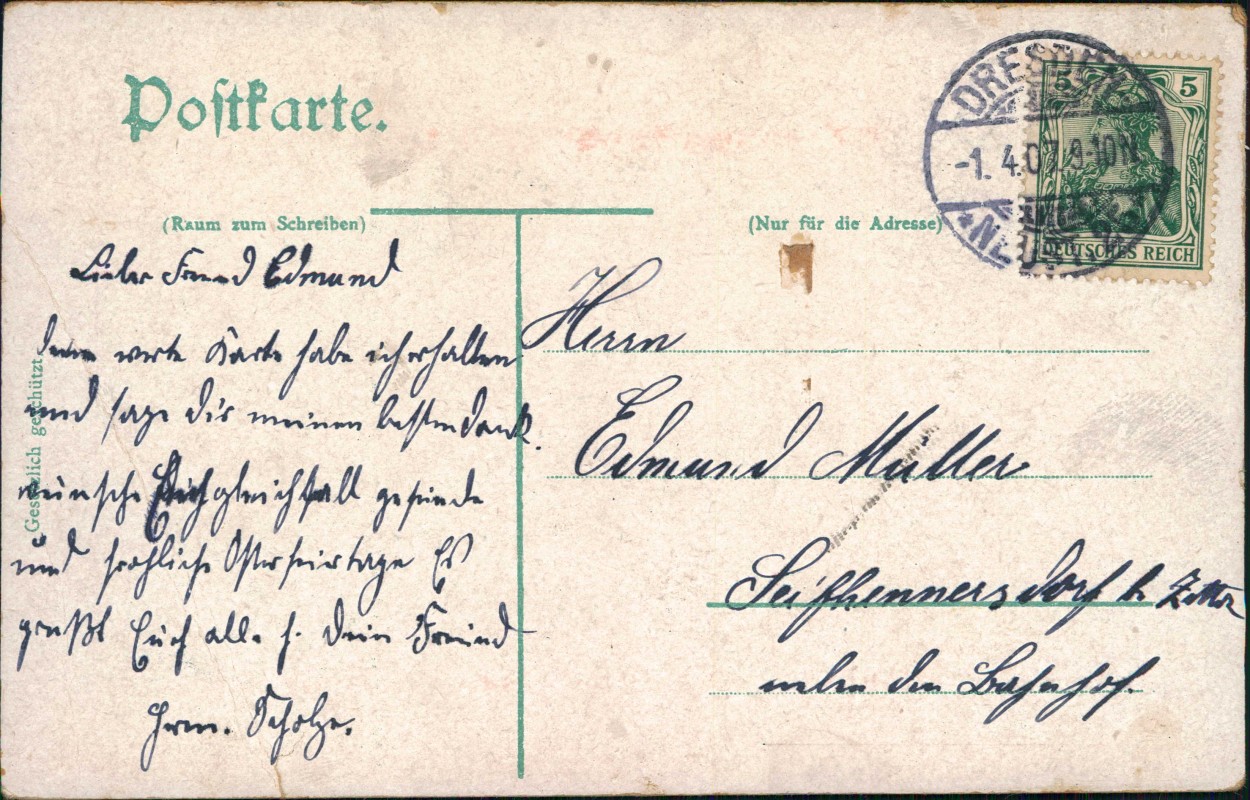 Postkarte.
(Raum zum Schreiben)
(Nur für die Adresse)
Gesetzlich geschützt
DRESDEN
-1.4.07. 9-10N.
NEUST.
5 5
DEUTSCHES REICH
Lieber Freund Edmund
deine werte Karte habe ich erhalten
und sage dir meinen besten Dank.
wünsche Euch gleichfalls gesunde
und fröhliche Osterfeiertage Es
grüßt Euch alle h. Dein Freund
Herm. Scholze.
Herrn
Edmund Müller
Seifhennersdorf b. Zittau
neben den Bahnhof.